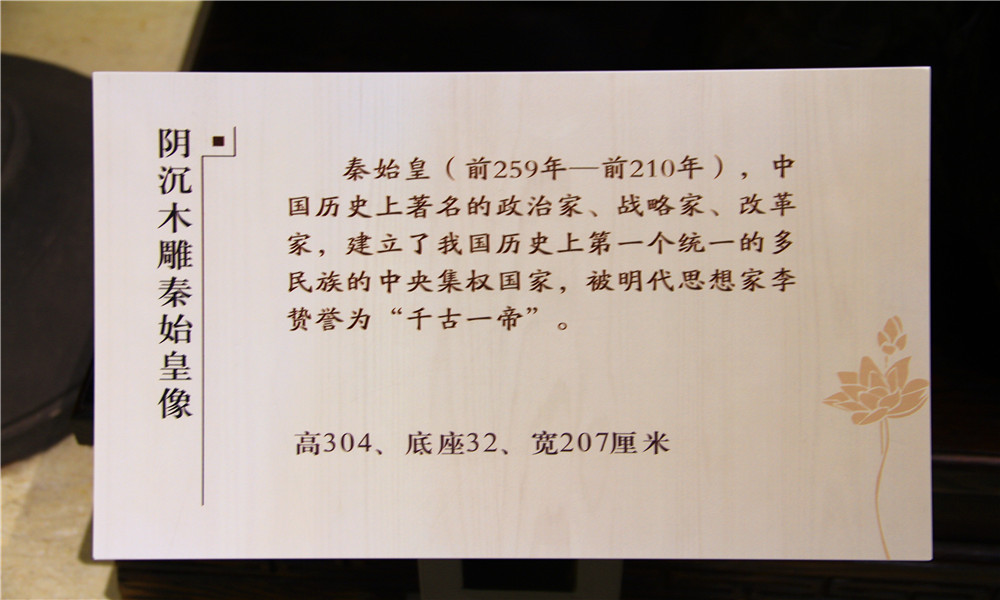 阴沉木雕秦始皇像
秦始皇（前259年—前210年），中
国历史上著名的政治家、战略家、改革
家，建立了我国历史上第一个统一的多
民族的中央集权国家，被明代思想家李
贽誉为“千古一帝”。
高304、底座32、宽207厘米